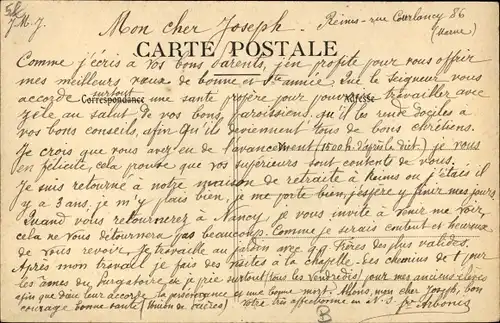 J. M. J.
Mon cher Joseph. Reims - rue Courlancy 86
(Marne)
CARTE POSTALE
Comme j'écris à vos bons parents, j'en profite pour vous offrir
mes meilleurs vœux de bonne et Ste année. Que le Seigneur vous
accorde surtout une santé prospère pour pouvoir travailler avec
Correspondance Adresse
zèle au salut de vos bons paroissiens, qu'il les rende dociles à
vos bons conseils, afin qu'ils deviennent tous de bons chrétiens.
Je crois que vous avez eu de l'avancement je vous
en félicite, cela prouve que vos supérieurs sont contents de vous.
Je suis retourné à notre maison de retraite à Reims où j'étais il
y a 3 ans je m'y plais bien, je me porte bien, j'espère y finir mes jours
Quand vous retournerez à Nancy, je vous invite à venir me voir,
cela ne vous détournera pas beaucoup. Comme je serais content et heureux
de vous revoir. Je travaille au jardin avec qq frères des plus valides.
Après mon travail je fais des visites à la chapelle - des chemins de † pour
les âmes du purgatoire et je prie surtout (tous les vendredis) pour mes anciens élèves
afin que Dieu leur accorde la persévérance et une bonne mort. Allons, mon cher Joseph, bon
courage bonne santé (Union de prières) Votre très affectionné en N. S. fr Arbonis